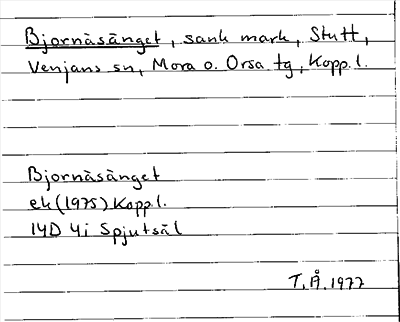 Bjornäsänget, sank mark, Stutt,
Venjans sn, Mora o. Orsa tg, Kopp. l.
Bjornäsänget
ek (1975) Kopp l.
14D 4i Spjutsäl
T. Å. 1977